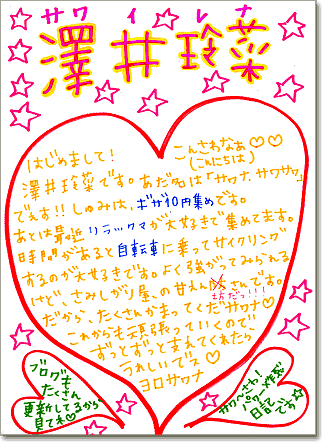 サワイレナ
澤井玲菜
こんさわなぁ♡♡
(こんにちは)
はじめまして!
澤井玲菜です。あだ名は「サワナ、サワサワ」
でぇす!!しゅみは、ギザ10円集めです。
あとは最近リラックマが大好きで集めてます。
時間があると自転車に乗ってサイクリング
するのが大好きです。よく強がってみられる
けど、さみしがり屋、の甘えん
さんです。
坊だっ!!!
だから、たくさんかまってくださワナ♡
これからも頑張っていくので
ずっとずっと支えてくれたら
うれしいでス♡
ヨロサワナ
ブログも
たくさん
更新してるから
見てね♡
サワ〜さわ!
パワー炸裂
日記です